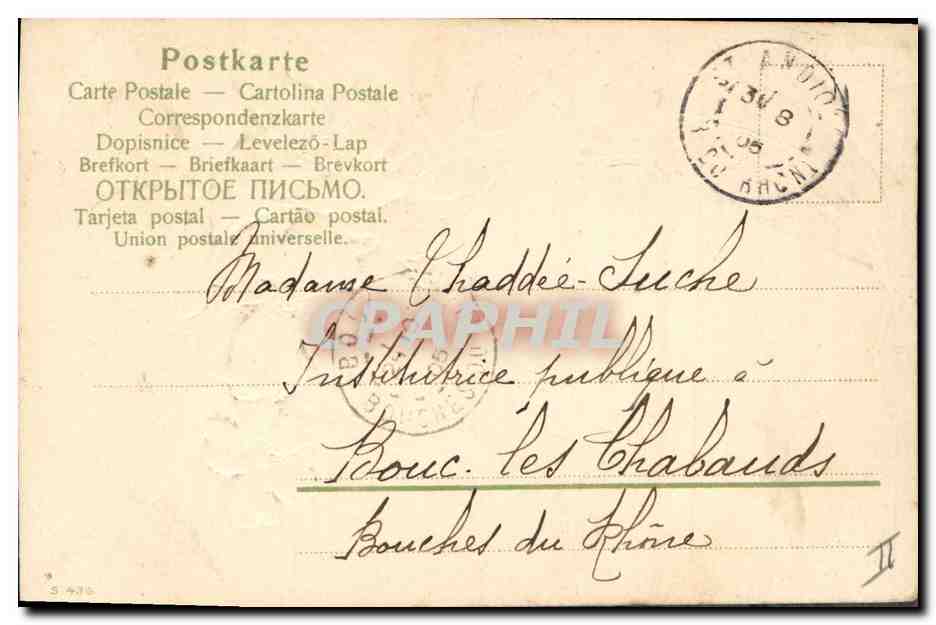 Postkarte
Carte Postale — Cartolina Postale
Correspondenzkarte
Dopisnice — Levelező-Lap
Brefkort — Briefkaart — Brevkort
ОТКРЫТОЕ ПИСЬМО.
Tarjeta postal — Cartão postal.
Union postale universelle.
ST ANDIOL
30 8
05
DU RHÔNE
Madame Thaddée-Suche
CPAPHIL
05
BOUCHES DU
Institutrice publique à
Bouc-les Chabauds
Bouches du Rhône
II
S 436